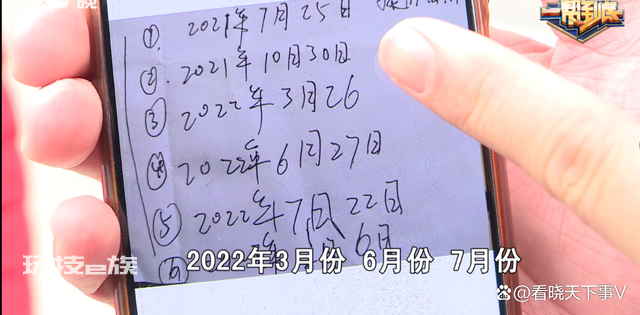 ① 2021年7月25日
② 2021年10月30日
③ 2022年3月26
④ 2022年6月27日
⑤ 2022年7月22日
⑥ 6月
2022年3月份 6月份 7月份
玩技e族
一帮到底
晚
看晓天下事V